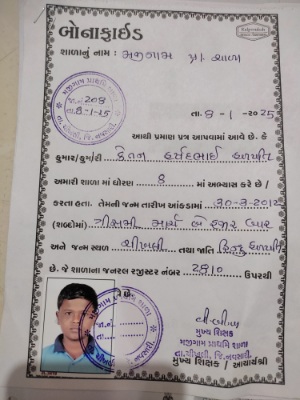 બોનાફાઈડ
શાળાનું નામ: મજીગામ પ્રા. શાળા
તા. 8-1-2025
આથી પ્રમાણ પત્ર આપવામાં આવે છે. કે
કુમાર/કુમારી કેતન
અમારી શાળા માં ધોરણ 8 માં અભ્યાસ કરે છે /
કરતા હતા. તેમની જન્મ તારીખ આંકડામાં 30-3-2012
(શબ્દોમાં) ત્રીસમી માર્ચ બે હજાર બાર
અને જન્મ સ્થળ ચીખલી તથા જાતિ હિન્દુ
છે. જે શાળાના જનરલ રજીસ્ટર નંબર 2910 ઉપરથી
મુખ્ય શિક્ષક
મજીગામ પ્રાથમિક શાળા
તા.ચીખલી, જિ.નવસારી.
મુખ્ય શિક્ષક / આચાર્યશ્રી